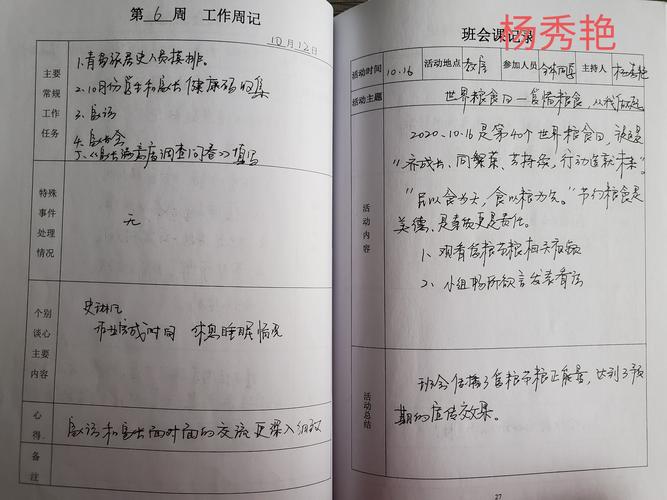 第 6 周 工作周记
10月12日
主要常规工作任务
1.青岛旅居史人员摸排。
2.10月份学生和家长健康码收集
3.家访
4.家长会
5.《家长满意度调查问卷》填写
特殊事件处理情况
无
个别谈心主要内容
作业完成时间 休息睡眠情况
心得
家访和家长面对面的交流更深入细致
备注
杨秀艳
班会课记录
活动时间 10.16 活动地点 教室 参加人员 全体同学 主持人 杨秀艳
活动主题
世界粮食日—爱惜粮食,从我做起
活动内容
2020.10.16是第40个世界粮食日,
"齐成长、同繁荣、共持续,行动造就未来"
"民以食为天,食以粮为先。"节约粮食是
美德,是更是责任。
1、观看爱粮节粮相关视频
2、小组畅所欲言发表看法
活动总结
班会传播了爱粮节粮正能量,达到了预
期的宣传效果。
27